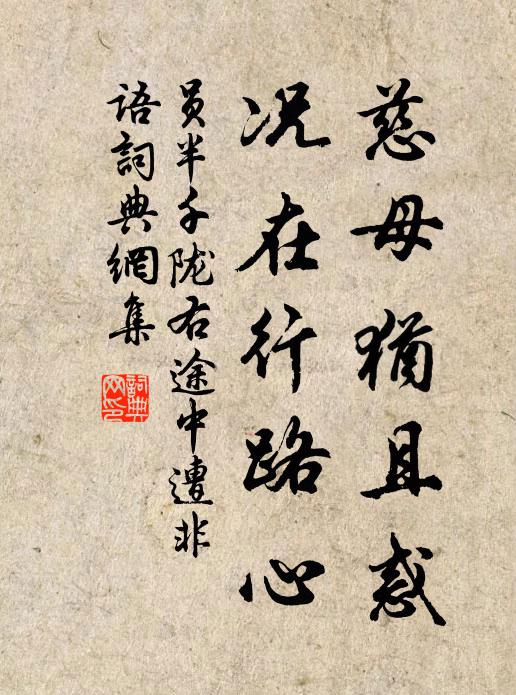 慈母猶且惑
况在行路心
员半千陇右途中遭非
语詞典網集
詞典
网印